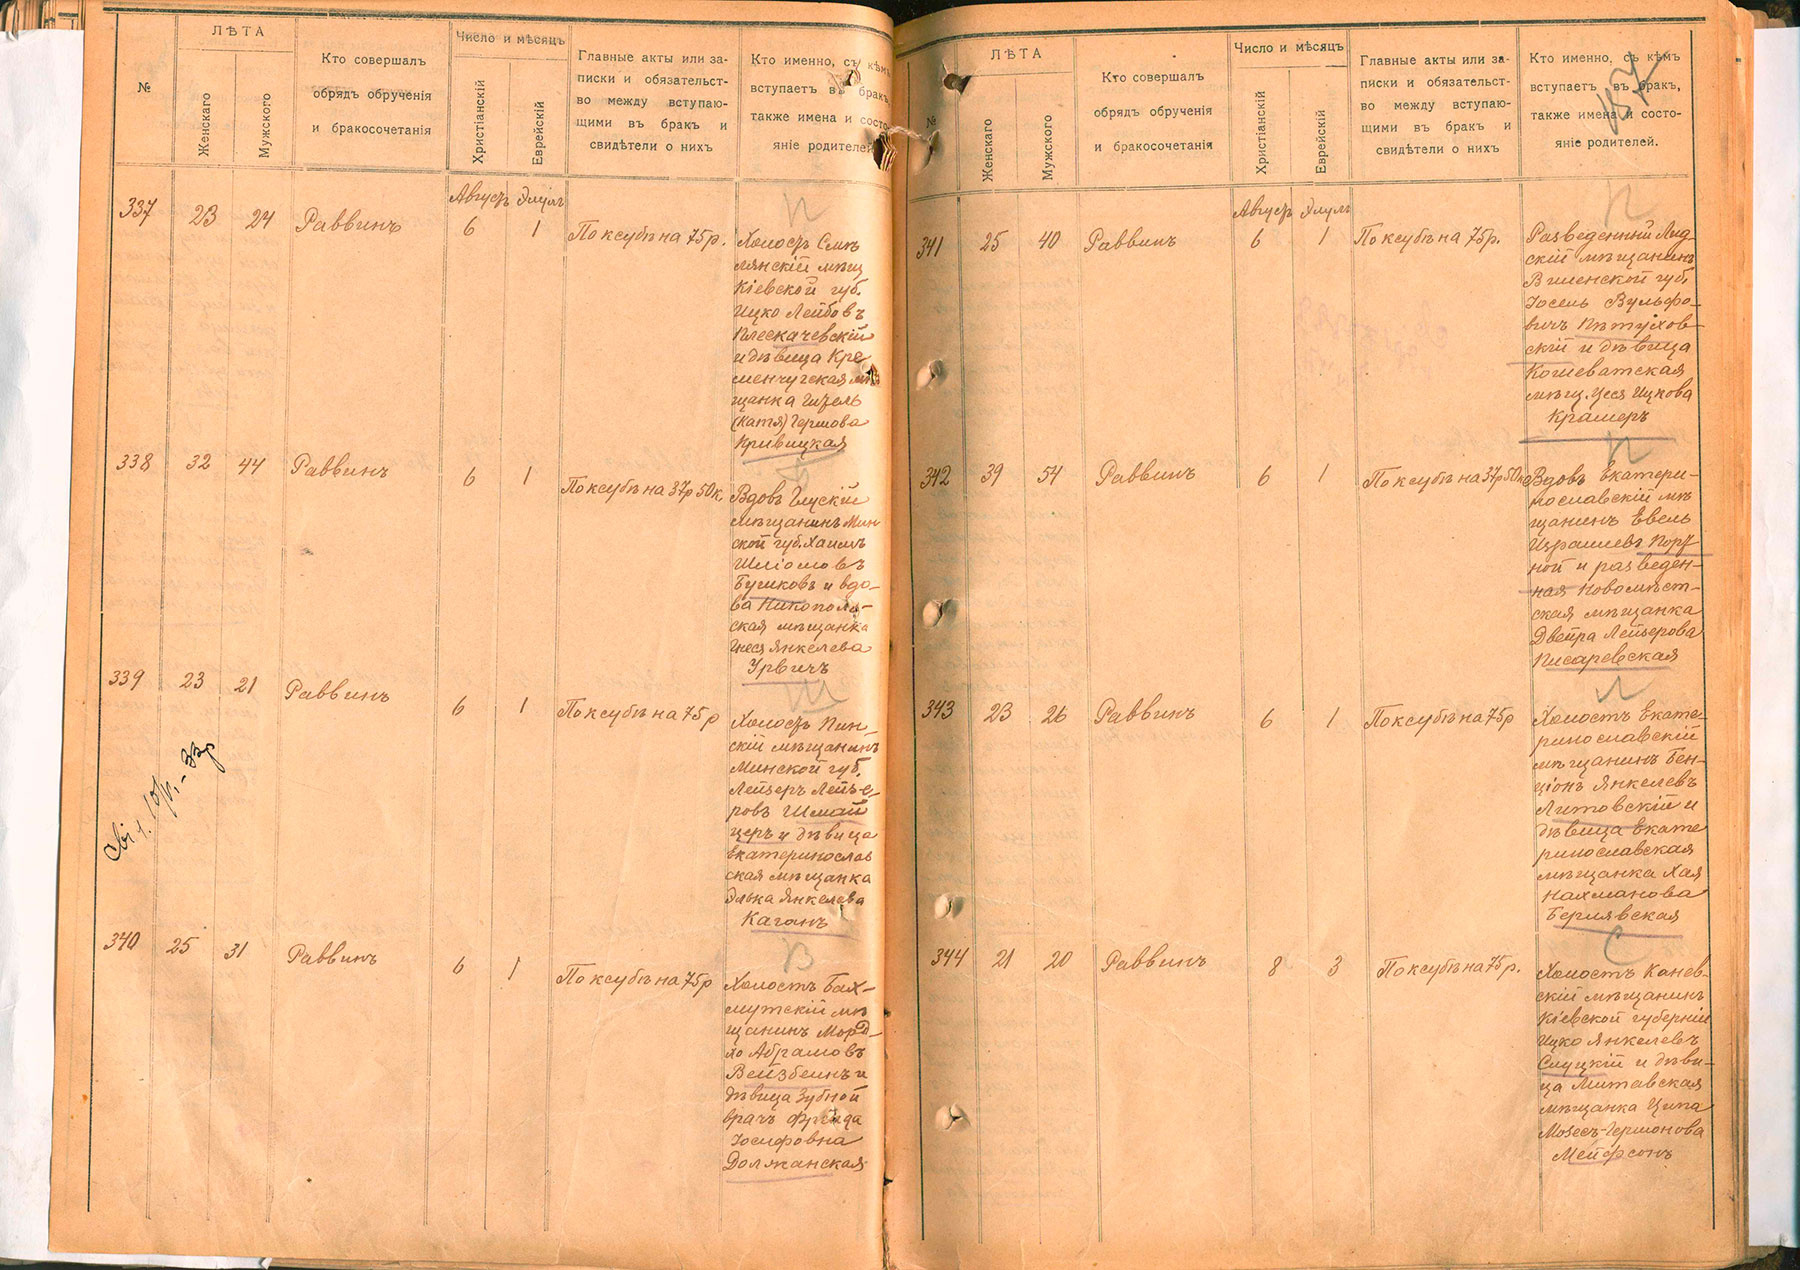 №
ЛѢТА
Женскаго
Мужского
Кто совершалъ
обрядъ обрученія
и бракосочетанія
Число и мѣсяцъ
Христіанскій
Еврейскій
Главные акты или за-
писки и обязательст-
во между вступаю-
щими въ бракъ и
свидѣтели о нихъ
Кто именно, съ кѣмъ
вступаетъ въ бракъ,
также имена и состо-
яніе родителей
Августъ Элулъ
337 23 24 Раввинъ 6 1 По ксубѣ на 75 р.
П
Холостъ Смѣ
лянскій мѣщ
Кіевской губ.
Ицко Лейбовъ
Плескачевскій
и дѣвица Кре
менчугская мѣ
щанка Гитель
(Катя) Гершова
Кривицкая
338 32 44 Раввинъ 6 1 По ксубѣ на 37р 50к.
Б
Вдовъ Глускій
мѣщанинъ Мин
ской губ. Хаимъ
Шліомовъ
Бушковъ и вдо-
ва Никополь-
ская мѣщанка
Гнеся Янкелева
Урвичъ
339 23 21 Раввинъ 6 1 По ксубѣ на 75 р
Ш
Холостъ Пин-
скій мѣщанинъ
Минской губ.
Лейзеръ Лейзе-
ровъ Шмай
церъ и дѣвица
Екатеринослав
ская мѣщанка
Элька Янкелева
Каганъ
340 25 31 Раввинъ 6 1 По ксубѣ на 75 р
В
Холостъ Бах-
мутскій мѣ
щанинъ Морд-
хо Абрамовъ
Вейзбеинъ и
дѣвица Зубной
врачъ Фрейда
Іосифовна
Должанская
№
ЛѢТА
Женскаго
Мужского
Кто совершалъ
обрядъ обрученія
и бракосочетанія
Число и мѣсяцъ
Христіанскій
Еврейскій
Главные акты или за-
писки и обязательст-
во между вступаю-
щими въ бракъ и
свидѣтели о нихъ
Кто именно, съ кѣмъ
вступаетъ въ бракъ,
также имена и состо-
яніе родителей.
Августъ Элулъ
341 25 40 Раввинъ 6 1 По ксубѣ на 75р.
П
Разведенный Лид
скій мѣщанинъ
Виленской губ.
Іосель Вульфо-
вичъ Пѣтухов-
скій и дѣвица
Кошеватская
мѣщ. Цеся Ицкова
Крамеръ
342 39 54 Раввинъ 6 1 По ксубѣ на 37р 50к
П
Вдовъ Екатери-
нославскій мѣ
щанинъ Евель
Израилевъ Порт
ной и разведен-
ная Новомѣст-
ская мѣщанка
Двейра Лейзерова
Писаревская
343 23 26 Раввинъ 6 1 По ксубѣ на 75р
Л
Холостъ Екате-
ринославскій
мѣщанинъ Бен-
ціонъ Янкелевъ
Литовскій и
дѣвица Екате
ринославская
мѣщанка Хая
Нахманова
Бернявская
344 21 20 Раввинъ 8 3 По ксубѣ на 75р.
С
Холостъ Канев-
скій мѣщанинъ
Кіевской губерніи
Ицко Янкелевъ
Слуцкій и дѣви-
ца Митавская
мѣщанка Ципа
Мозесъ-Гермонова
Мейфсонъ